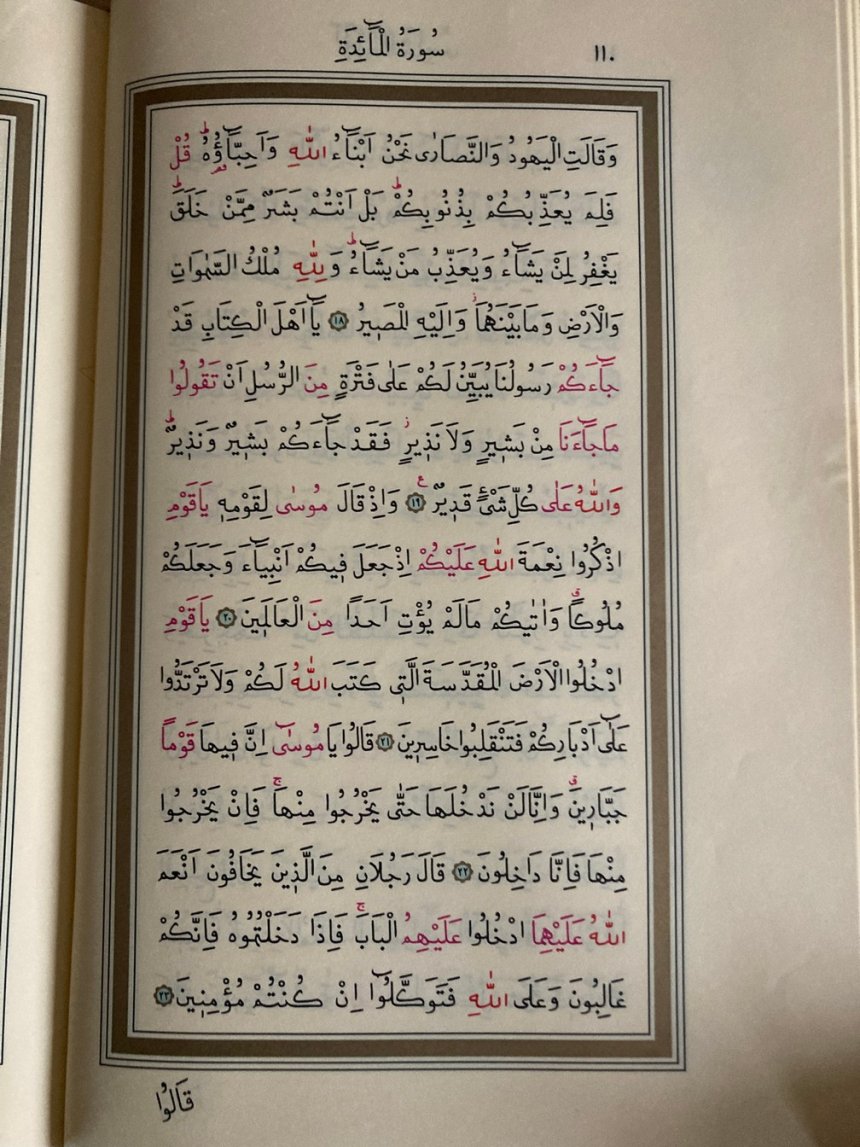 ١١٠ سُورَةُ الْمَٓائِدَةِ
وَقَالَتِ الْيَهُودُ وَالنَّصَارٰى نَحْنُ اَبْنَٓاءُ اللّٰهِ وَاَحِبَّٓاؤُ۬هُۜ قُلْ
فَلِمَ يُعَذِّبُكُمْ بِذُنُوبِكُمْۜ بَلْ اَنْتُمْ بَشَرٌ مِمَّنْ خَلَقَۜ
يَغْفِرُ لِمَنْ يَشَٓاءُ وَيُعَذِّبُ مَنْ يَشَٓاءُۜ وَلِلّٰهِ مُلْكُ السَّمٰوَاتِ
وَالْاَرْضِ وَمَا بَيْنَهُمَاۘ وَاِلَيْهِ الْمَص۪يرُ ﴿١٨﴾ يَٓا اَهْلَ الْكِتَابِ قَدْ
جَٓاءَكُمْ رَسُولُنَا يُبَيِّنُ لَكُمْ عَلٰى فَتْرَةٍ مِنَ الرُّسُلِ اَنْ تَقُولُوا
مَا جَٓاءَنَا مِنْ بَش۪يرٍ وَلَا نَذ۪يرٍۘ فَقَدْ جَٓاءَكُمْ بَش۪يرٌ وَنَذ۪يرٌۜ
وَاللّٰهُ عَلٰى كُلِّ شَيْءٍ قَد۪يرٌ۟ ﴿١٩﴾ وَاِذْ قَالَ مُوسٰى لِقَوْمِه۪ يَا قَوْمِ
اذْكُرُوا نِعْمَةَ اللّٰهِ عَلَيْكُمْ اِذْ جَعَلَ ف۪يكُمْ اَنْبِيَٓاءَ وَجَعَلَكُمْ
مُلُوكاًۗ وَاٰتٰيكُمْ مَا لَمْ يُؤْتِ اَحَداً مِنَ الْعَالَم۪ينَ ﴿٢٠﴾ يَا قَوْمِ
ادْخُلُوا الْاَرْضَ الْمُقَدَّسَةَ الَّت۪ي كَتَبَ اللّٰهُ لَكُمْ وَلَا تَرْتَدُّوا
عَلٰٓى اَدْبَارِكُمْ فَتَنْقَلِبُوا خَاسِر۪ينَ ﴿٢١﴾ قَالُوا يَا مُوسٰٓى اِنَّ ف۪يهَا قَوْماً
جَبَّار۪ينَۗ وَاِنَّا لَنْ نَدْخُلَهَا حَتّٰى يَخْرُجُوا مِنْهَاۚ فَاِنْ يَخْرُجُوا
مِنْهَا فَاِنَّا دَاخِلُونَ ﴿٢٢﴾ قَالَ رَجُلَانِ مِنَ الَّذ۪ينَ يَخَافُونَ اَنْعَمَ
اللّٰهُ عَلَيْهِمَا ادْخُلُوا عَلَيْهِمُ الْبَابَۚ فَاِذَا دَخَلْتُمُوهُ فَاِنَّكُمْ
غَالِبُونَ وَعَلَى اللّٰهِ فَتَوَكَّلُٓوا اِنْ كُنْتُمْ مُؤْمِن۪ينَ ﴿٢٣﴾
قَالُوا